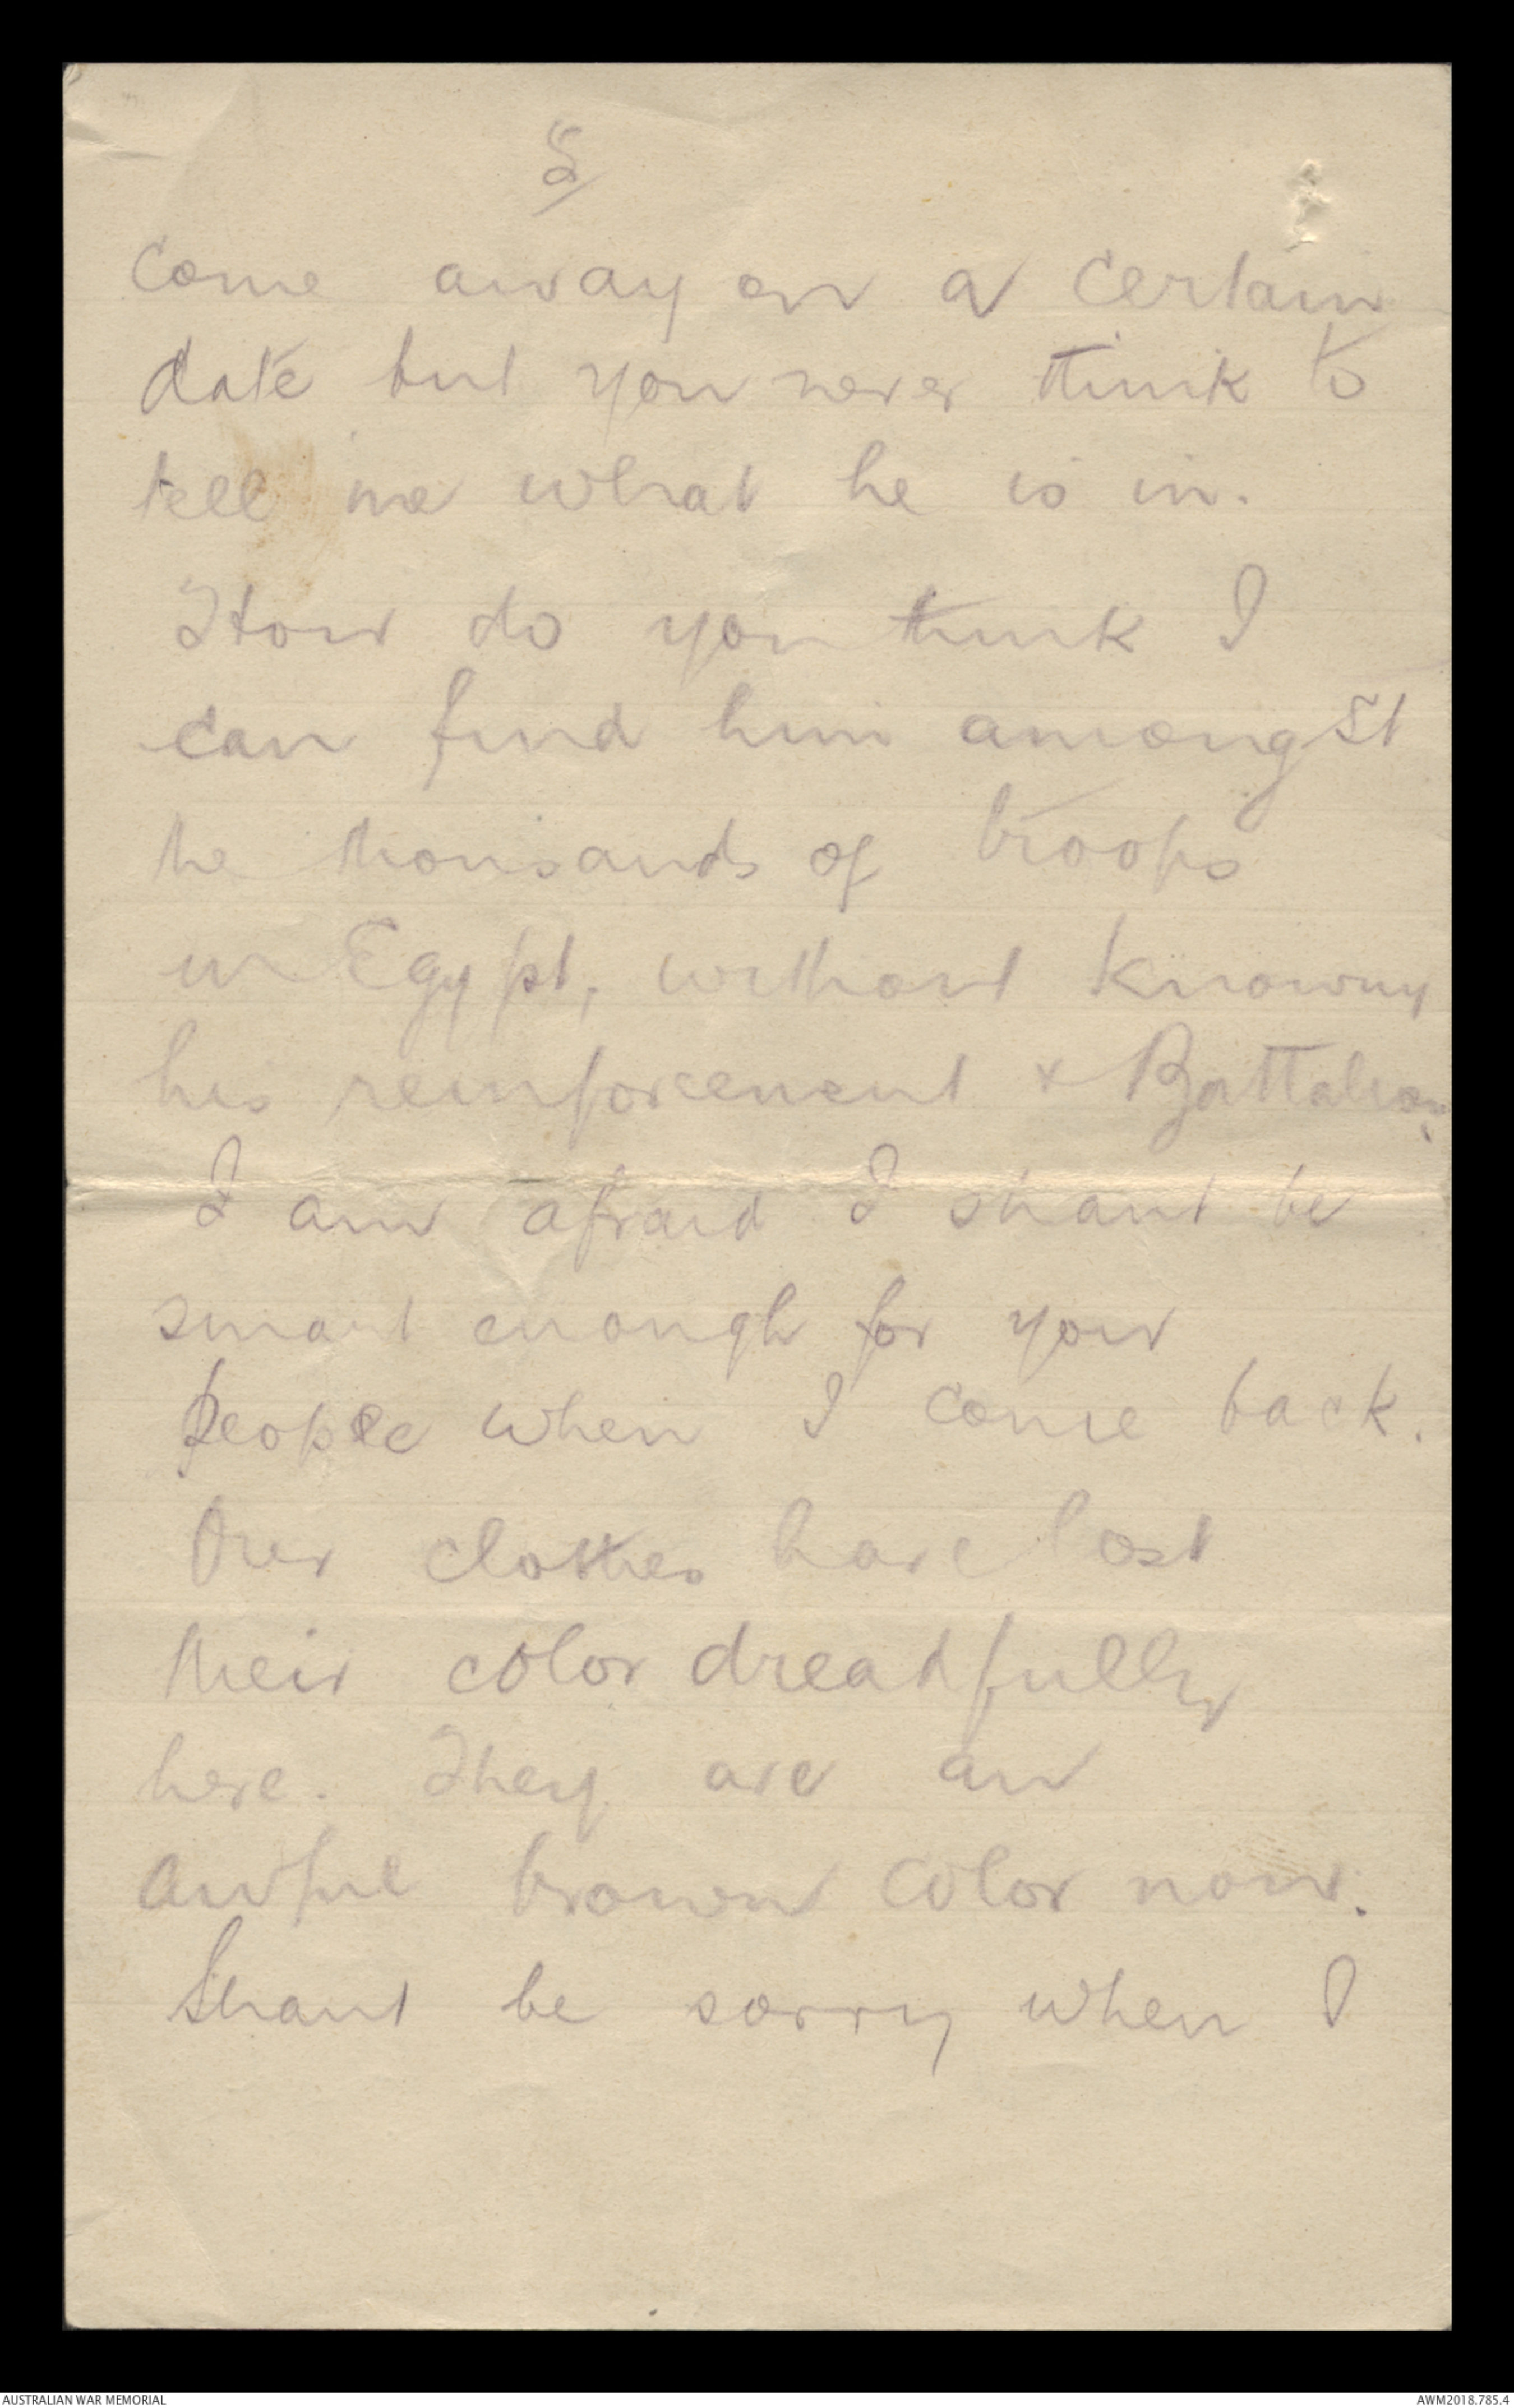 8/
come away on a certain
date but you never think to
tell me what he is in.
How do you think I
can find him amongst
the thousands of troops
in Egypt, without knowing
his reinforcement & Battalion.
I am afraid I shant be
smart enough for your
people when I come back.
Our clothes have lost
their color dreadfully
here. They are an
awful brown color now.
Shant be sorry when I
AUSTRALIAN WAR MEMORIAL
AWM2018.785.4